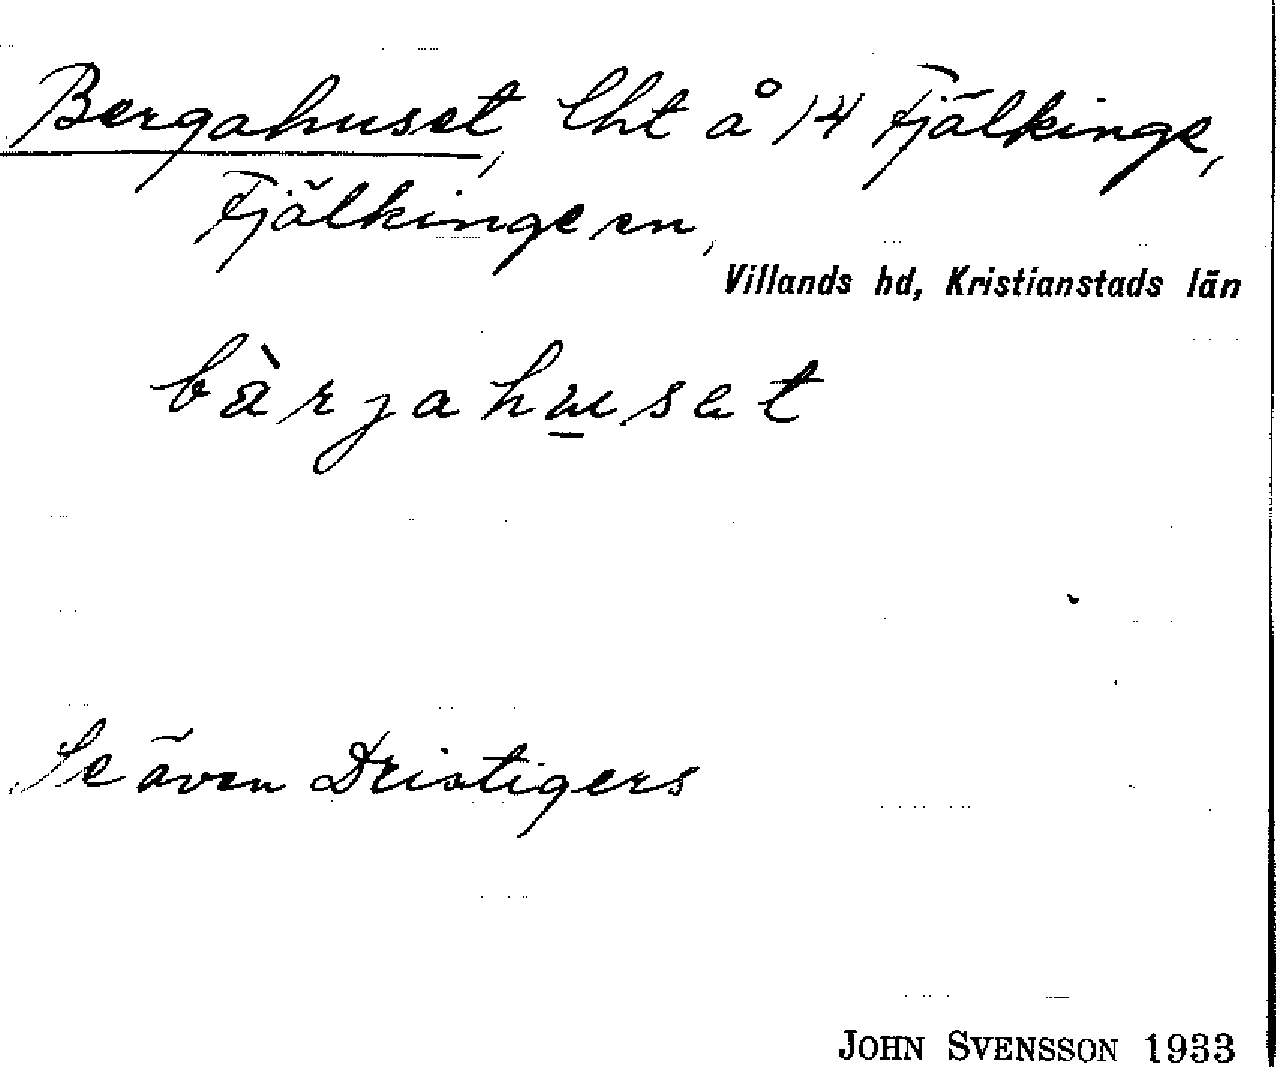 Bergahuset, lht å 14 Fjälkinge,
Fjälkinge sn,
Villands hd, Kristianstads län
bàrjahuset
Se även Dristigers
JOHN SVENSSON 1933